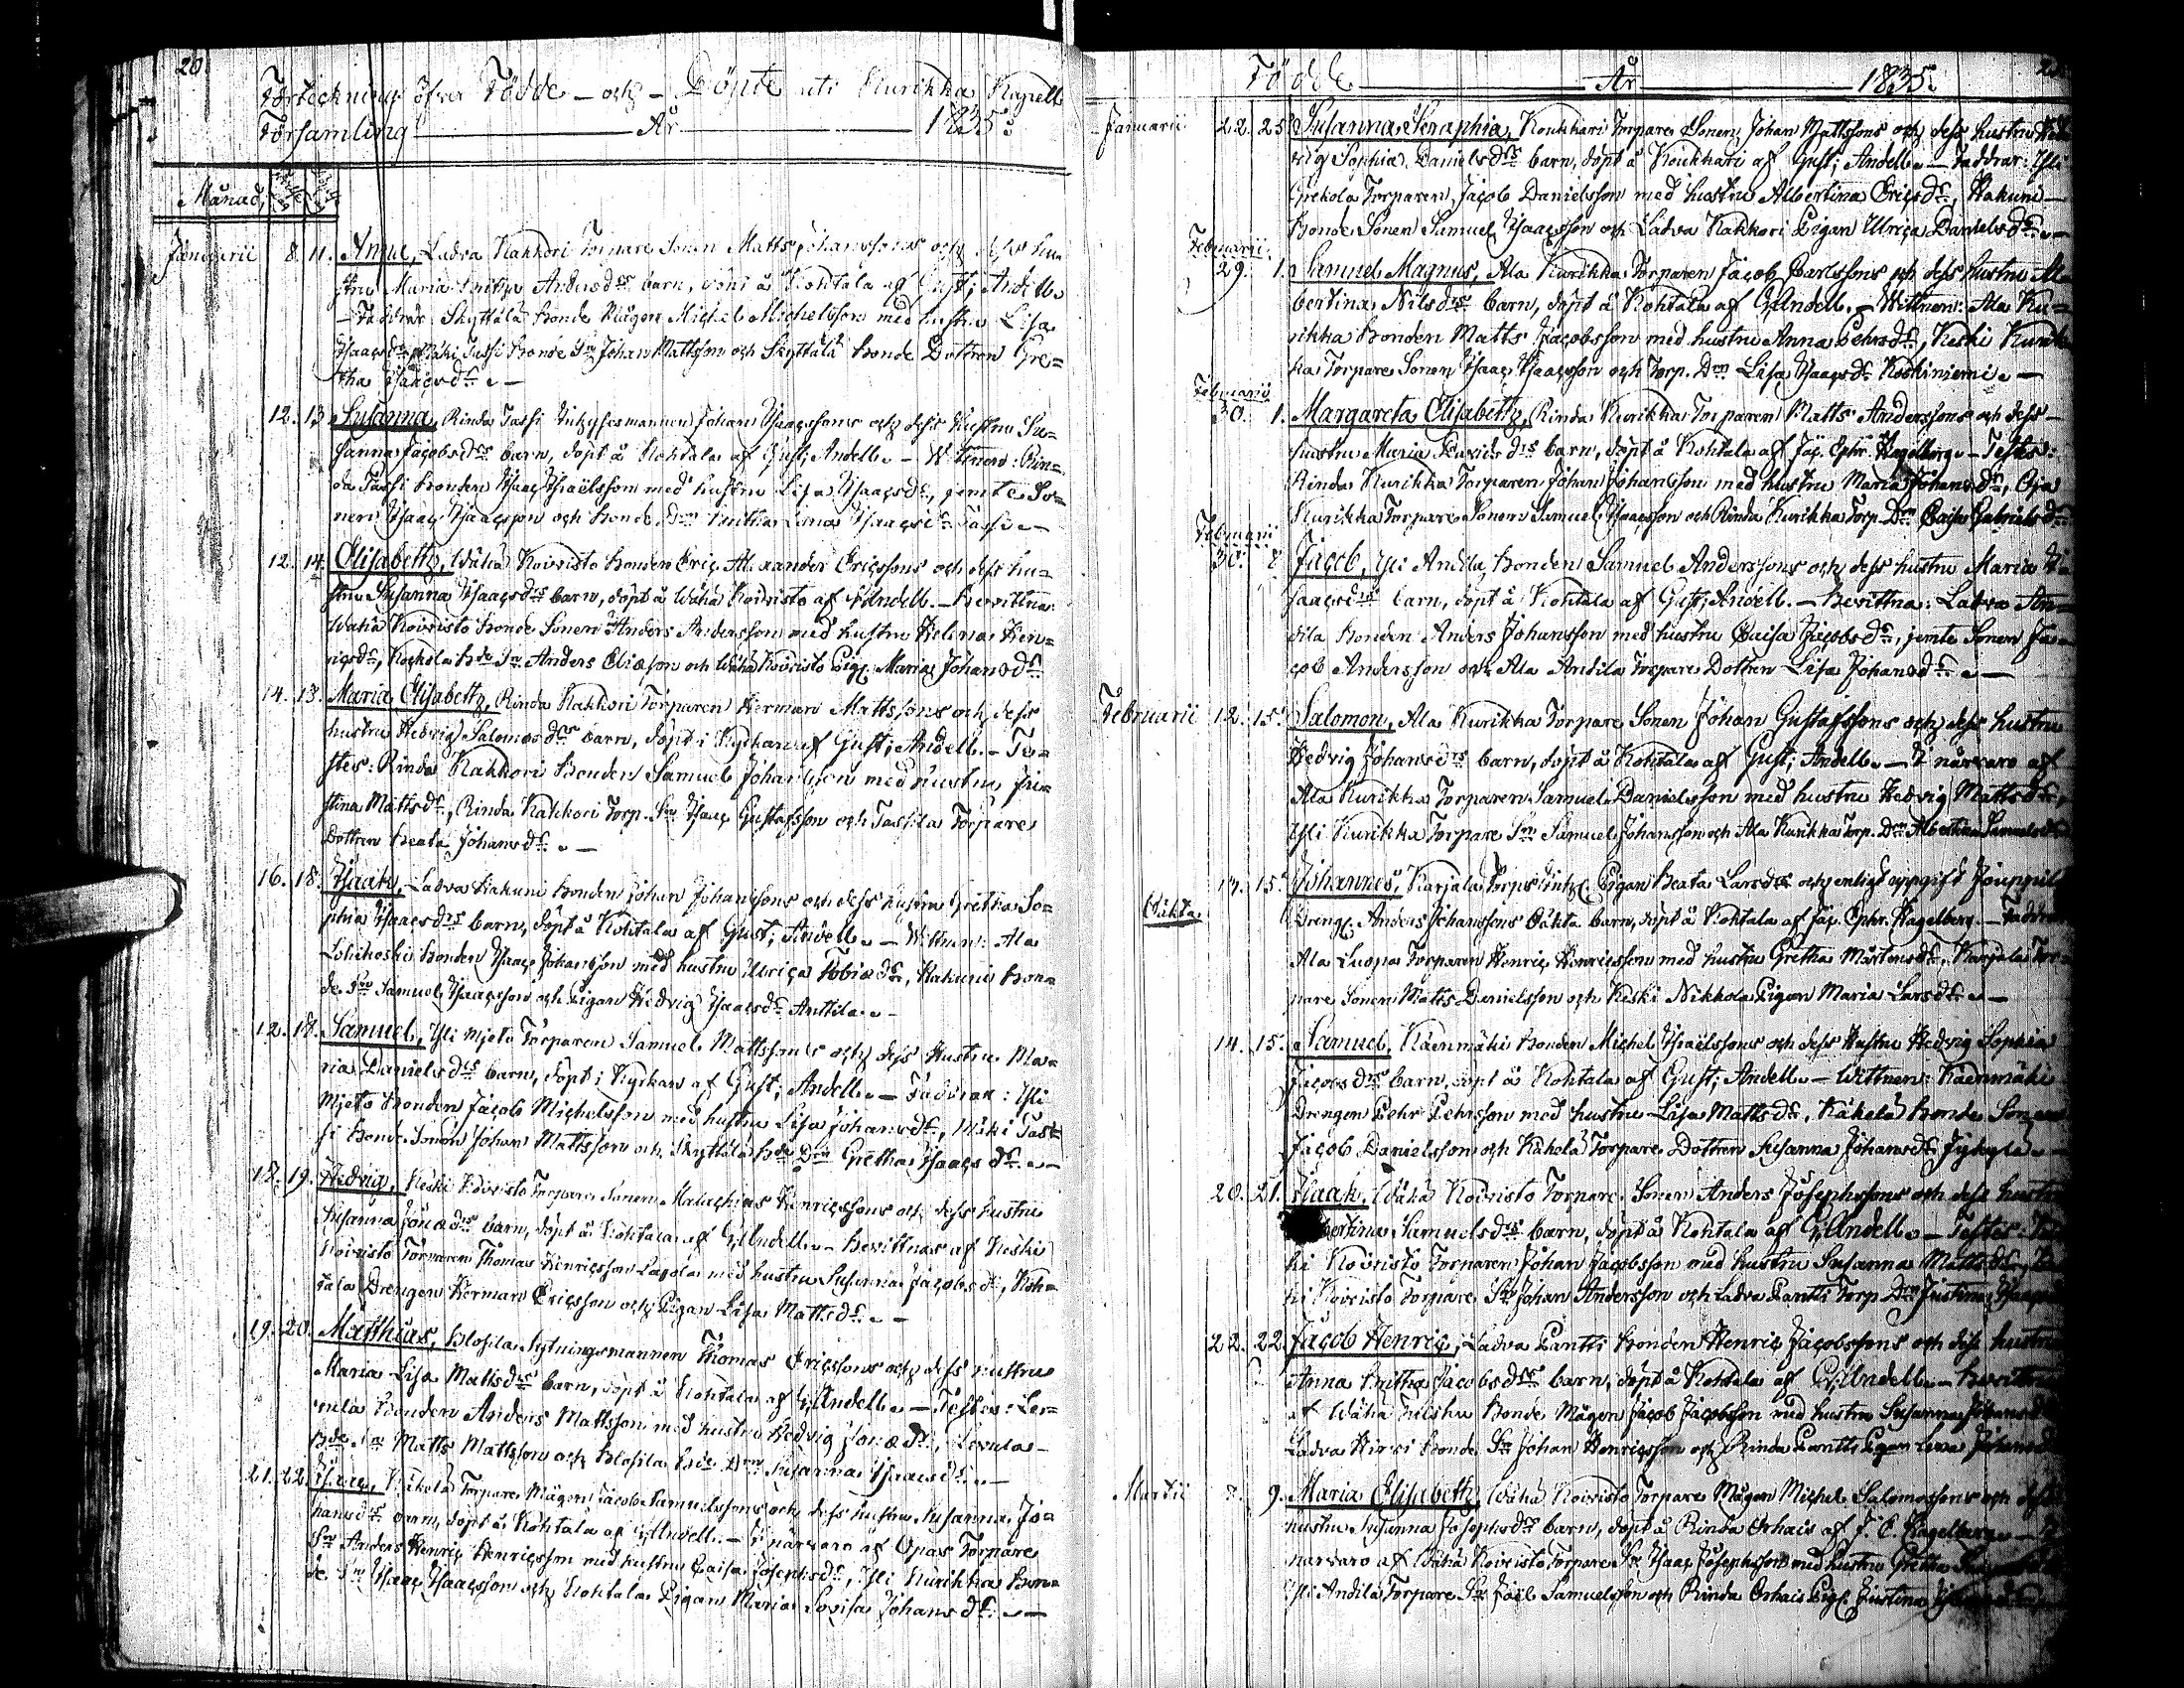 20
Förteckning öfver Födde – och – Döpte uti Kurikka Kapell
Församling År 1835.
Månad,
Januarii 8. 11. Anna, Ladva Kakkori Torpare Sonen Matts Johanssons och dess hu=
stru Maria Andersdrs barn, döpt å Kohtala af Gust; Andell.
– Faddrar Skyttälä Bonde Mågen Michel Michelsson med hustru Lisa
Isaacsdr, Mäki Tassi Bonde Sn Johan Mattsson och Skyttälä Bonde Dottren Gre=
tha Isaacsdr. –
12. 13. Susanna, Rinda Tassi Johan Isaacssons och dess hustru Su=
sanna Jacobsdrs barn, döpt å Kohtala af Gust; Andell. – Wittnen: Rin=
da Tassi Bonden Isaac Israëlsson med hustru Lisa Isaacsdr, jemte So=
nen Isaac Isaacsson och Bonde Drn Lena Isaacsdr Tassi. –
12. 14. Elisabeth, Wähä Koivisto Bonden Eric Alexander Ericssons och dess hu=
stru Susanna Isaacsdrs barn, döpt å Wähä Koivisto af G Andell. – Bevittna:
Wähä Koivisto Bonde Sonen Anders Andersson med hustru Helena Hen=
ricsdr, Kockola Bde Sn Anders Eliæson och Wähä Koivisto Pig. Maria Johansdr.
14. 15. Maria Elisabeth, Rinda Kakkori Torparen Herman Mattssons och dess
hustru Hedvig Salomosdrs barn, döpt i Kyrkan af Gust; Andell. – Te=
stes: Rinda Kakkori Bonden Samuel Johansson med hustru Ju=
stina Mattsdr, Rinda Kakkori Torp. Sn Isaac Gustafsson och Tassila Torpare
Dottren Beata Johansdr. –
16. 18. Isaak, Ladva Hakuni Bonden Johan Johanssons och dess hustru Gretha So=
phia Isaacsdrs barn, döpt å Kohtala af Gust; Andell. – Wittnen: Ala
Lohikoski Bonden Isaac Johansson med hustru Ulrica Tobiædr, Hakuni Bon=
de Sn Samuel Isaacsson och Pigan Hedvig Isaacsdr Anttila. –
12. 18. Samuel, Yli Mjeto Torparen Samuel Mattssons och dess Hustru Ma=
ria Danielsdrs barn, döpt i Kyrkan af Gust; Andell. – Faddrar: Yli
Mjeto Bonden Jacob Michelsson med hustru Lisa Johansdr, Mäki Tas=
si Bonde Sonen Johan Mattsson och Skyttälä Bde Drn Gretha Isaacsdr. –
17. 19. Hedvig, Keski Koivisto Torpare Sonen Malachias Henricssons och dess hustru
Susanna Jonædrs barn, döpt å Kohtala af G; Andell. – Bevittnas af Keski
Koivisto Torparen Thomas Henricsson med hustru Susanna Jacobsdr, Koh=
tala Drengen Herman Ericsson och Pigan Lisa Mattsdr. –
19. 20. Matthias, Blofila Thomas Ericssons och dess hustru
Maria Lisa Mattsdrs barn, döpt å Kohtala af G; Andell. – Testes: Ler=
vela Bonden Anders Mattsson med hustru Hedvig Jonædr,
Bde Sn Matts Mattsson och Blofila Bde Drn Susanna Isaacsdr. –
21. 22. Isaac, Käkelä Torpare Mågen Jacob Samuelssons och dess hustru Susanna Jo=
hansdrs barn, döpt å Kohtala af G; Andell. – I närvaro af Opas Torpare
Sn Anders Henric Henricsson med hustru Caisa Josephsdr, Yli Kurikka Bon=
de Sn Isaac Isaacsson och Kohtala Pigan Maria Lovisa Johansdr. –
Födde År 1835.
Januarii 22. 25. Susanna Seraphia, Koukkari Torpare Sonen Johan Mattssons och dess hustru Hed
vig Sophia Danielsdrs barn, döpt å Koukkari af Gust; Andell. – Faddrar: Yli
Grekola Torparen Jacob Danielsson med hustru Albertina Ericsdr, Hakuni
Bonde Sonen Samuel Isaacsson och Ladva Kakkori Pigan Ulrica Danielsdr. –
Februarii
29. 1. Samuel Magnus, Ala Kurikka Torparen Jacob Carlssons och dess hustru Al
bertina Nilsdrs barn, döpt å Kohtala af G Andell. – Wittnen: Ala Ku=
rikka Bonden Matts Jacobsson med hustru Anna Pehrsdr, Keski Kurik
ka Torpare Sonen Isaac Isaacsson och Torp. Drn Lisa Isaacsdr Koskiniemi. –
Februarii
30. 1. Margareta Elisabeth, Rinda Kurikka Torparen Matts Anderssons och dess
hustru Maria Davidsdrs barn, döpt å Kohtala af Jac. Ephr. Hagelberg – Testes:
Rinda Kurikka Torparen Johan Johansson med hustru Maria Johansdr, Oja
Kurikka Torpare Sonen Samuel Isaacsson och Rinda Kurikka Torp. Drn Caisa Gabrielsdr
Februarii
30. 8. Jacob, Yli Andila Bonden Samuel Anderssons och dess hustru Maria I=
saacsdrs barn, döpt å Kohtala af Gust; Andell. – Bevittna: Ladva An=
dila Bonden Anders Johansson med hustru Caisa Jacobsdr, jemte Sonen Ja=
cob Andersson och Ala Andila Torpare Dottren Lisa Johansdr. –
Februarii 12. 15. Salomon, Ala Kurikka Torpare Sonen Johan Gustafssons och dess hustru
Hedvig Johansdrs barn, döpt å Kohtala af Gust; Andell. – I närvaro af
Ala Kurikka Torparen Samuel Danielsson med hustru Hedvig Mattsdr,
Yli Kurikka Torpare Sn Samuel Johansson och Ala Kurikka Torp. Drn Albertina Samuelsdr
Oäkta 13. 15. Johannes, Karjala Torps Pigan Beata Larsdrs och enligt uppgift Jouppil
Dreng. Anders Johanssons Oäkta barn, döpt å Kohtala af Jac. Ephr. Hagelberg. – Faddrar
Ala Luopa Torparen Henric Henricsson med hustru Gretha Mårtensdr, Karjala Tor=
pare Sonen Matts Danielsson och Keski Nikkola Pigan Maria Larsdr. –
14. 15. Samuel, Käenmäki Bonden Michel Israëlssons och dess Hustru Hedvig Sophia
Jacobsdrs barn, döpt å Kohtala af Gust; Andell. – Wittnen: Käenmäki
Drengen Pehr Pehrsson med hustru Lisa Mattsdr, Käkelä Bonde Sonen
Jacob Danielsson och Käkelä Torpare Dottren Susanna Johansdr Jyhylä. –
20. 21. Isaak, Wähä Koivisto Torpare Sonen Anders Josephssons och dess hustru
bertina Samuelsdrs barn, döpt å Kohtala af G; Andell. – Testes:
ki Koivisto Torparen Johan Jacobsson med hustru Susanna Mattsdr,
ki Koivisto Torpare Sn Johan Andersson och Ladva Pantti Torp. Drn Justina
22. 22. Jacob Henric, Ladva Pantti Bonden Henric Jacobssons och dess hustru
Anna Britha Jacobsdrs barn, döpt å Kohtala af G; Andell. –
af Wähä Bonde Mågen Jacob Jacobsson med hustru Susanna Johansdr
Ladva Hirvi Bonde Sn Johan Henricsson och Rinda Pantti Pigan Lena Johansdr
Martii 7. 9. Maria Elisabeth, Wähä Koivisto Torpare Mågen Michel Salomossons och dess
hustru Susanna Josephsdrs barn, döpt å Rinda Orhais af J. E. Hagelberg. –
närvaro af Wähä Koivisto Torpare Sn Isaac Josephsson med hustru Gretha
Yli Andila Torpare Sn Joel Samuelsson och Rinda Orhais Pig. Justina